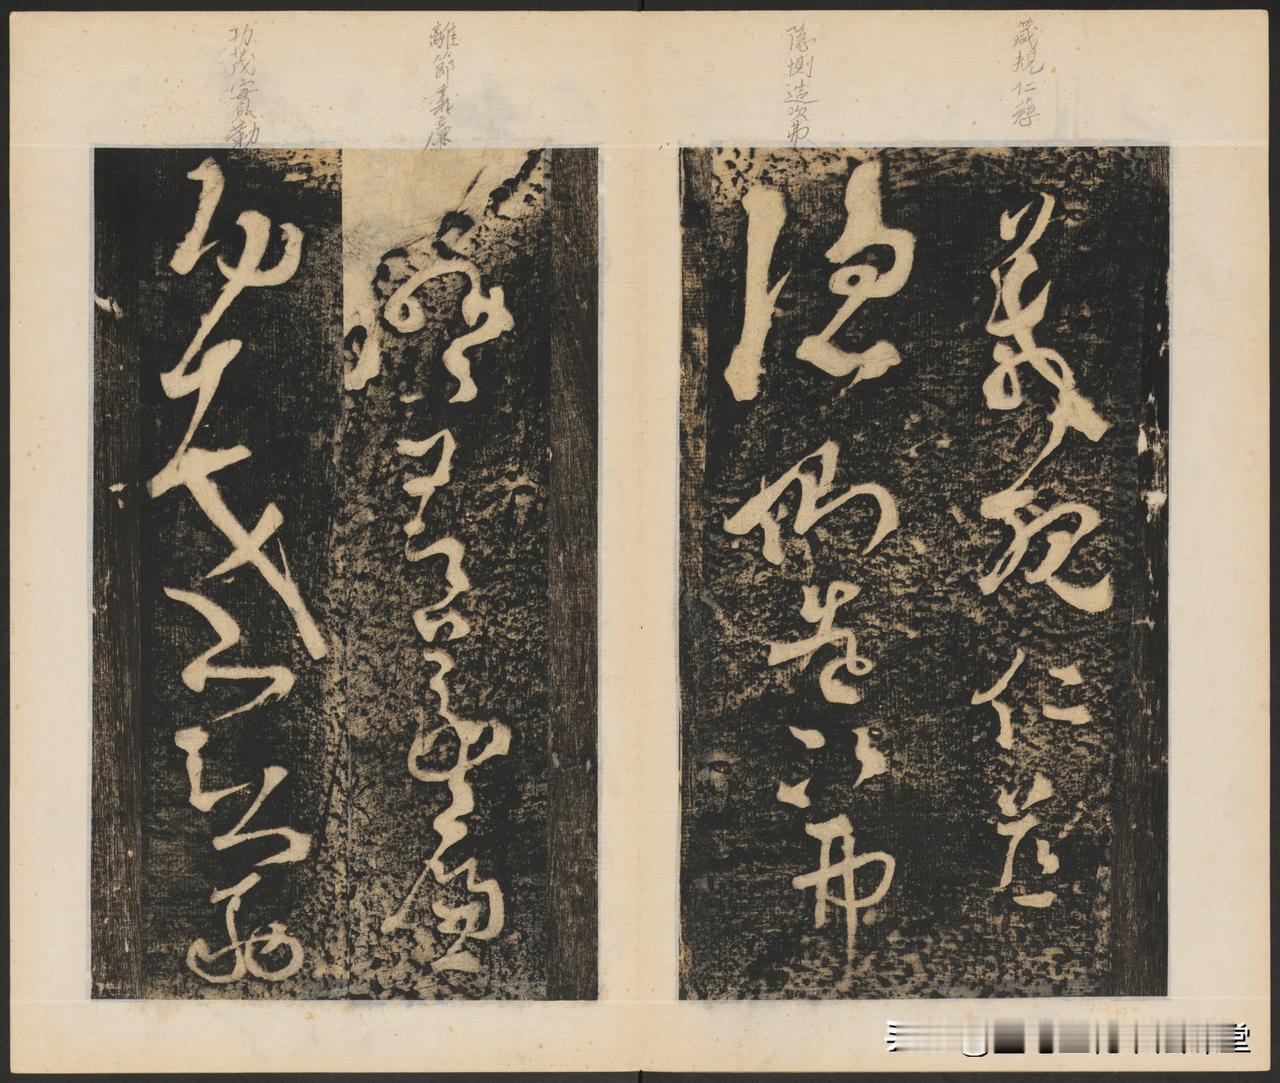 箴規仁慈
隐惻造次弗
離節義廉
功茂實勒
箴規仁慈
隐惻造次弗
離節義廉
功茂實勒